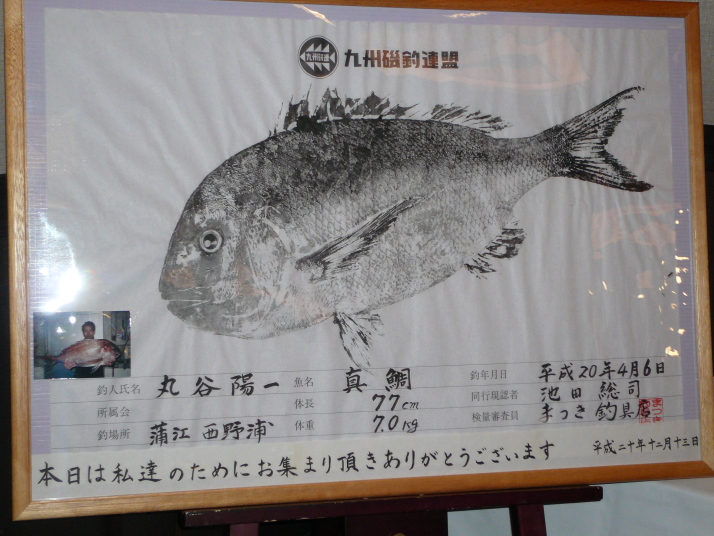 九州磯釣連盟
釣人氏名 丸谷陽一 魚名 真鯛 釣年月日 平成20年4月6日
所属会 体長 77cm 同行現認者 池田総司
釣場所 蒲江西野浦 体重 7.0kg 検量審査員 まつき釣具店
本日は私達のためにお集まり頂きありがとうございます
平成二十年十二月十三日